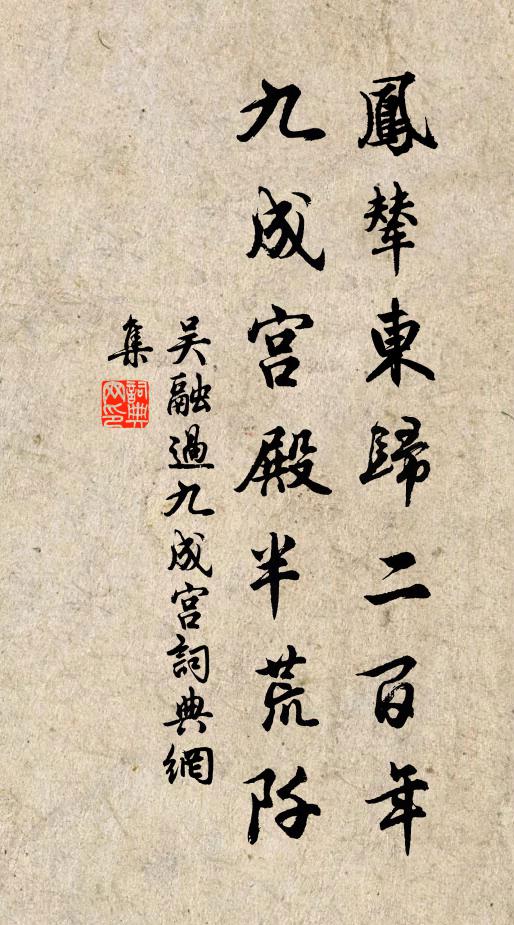 鳳輦東歸二百年
九成宮殿半荒阡
吳融過九成宮詞典網
集
詞典網印